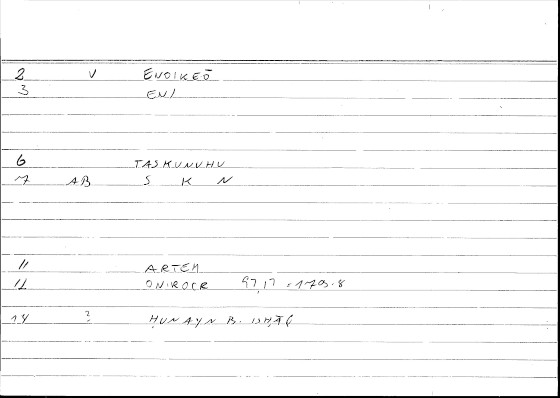 2 V ENOIKEŌ
3 ENI
6 TASKUNUHU
7 AB S K N
11 ARTEM
12 ONIROCR 97,17 = 179.8
14 ? ḤUNAYN B. ISḤĀQ